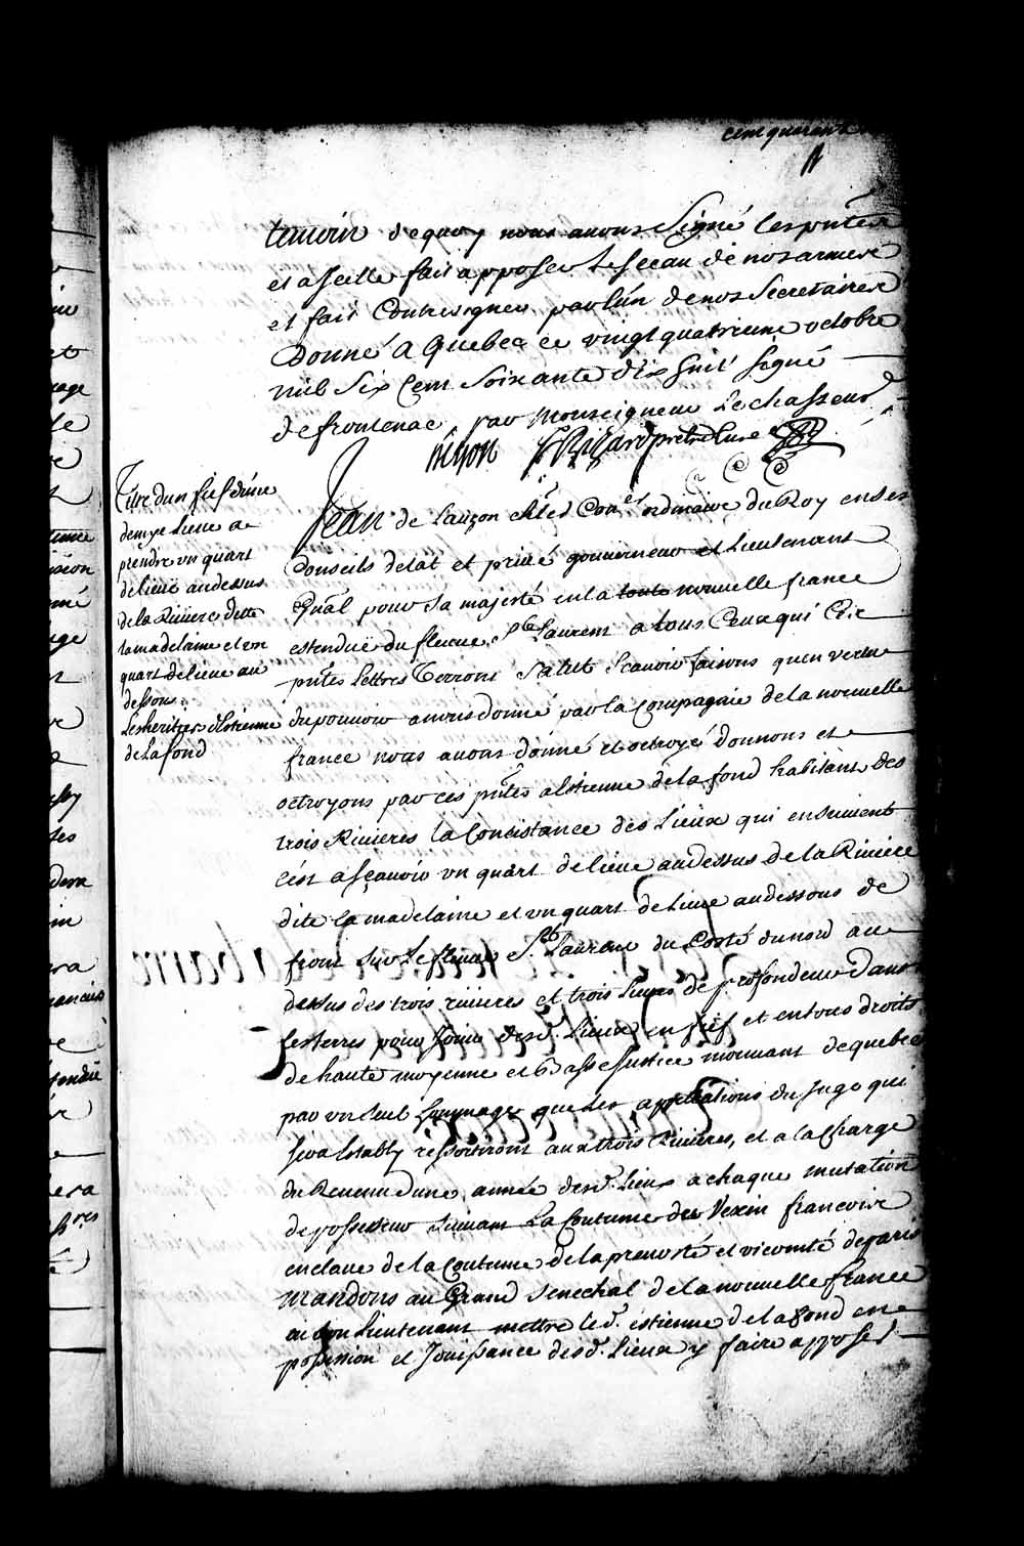 cent quarante
temoin de quoy nous avons Signé Ces pñtes
et a Icelle fait apposer Le sceau de nos armes
et fait Contresigner par l'un de nos Secretaires
Donné a Quebec ce vingt quatrieme octobre
mil Six Cent Soixante dix huit signé
de frontenac par Monseigneur Le chasseur
Titre dun fief dune
demye Lieue a
prendre un quart
de lieue audessus
de la Riviere ditte
la madelaine et un
quart de lieue au
dessous
Les heritiers destienne
de Lafond
Jean de Lauzon Con.er ordinaire du Roy en ses
Conseils detat et privé gouverneur et Lieutenant
Gñal pour sa majesté en la toute nouvelle france
estendue du fleuve St Laurent a tous Ceux qui Ces
pñtes Lettres Verront Salut Scavoir faisons quen vertu
du pouvoir a nous donné par la Compagnie de la nouvelle
france nous avons donné et octroyé donnons et
octroyons par ces pñtes a Estienne de la fond habitant des
trois Rivieres la Consistance des Lieux qui ensuivent
C'est a sçavoir un quart de lieue audessus de la Riviere
dite la madelaine et un quart de Lieue audessous de
front sur Le fleuve St Laurent du Costé du nord au
dessus des trois rivieres et trois Lieues de profondeur Dans
les terres pour Jouir desd. Lieux en fief et en tous droits
de haute moyenne et Basse Justice mouvant de quebec
par un seul hommage que les appellations du Juge qui
sera Estably ressortiront aux trois Rivieres, et a la Charge
du Revenu d'une année desd. Lieux a chaque mutation
de possesseur suivant La Coutume du Vexin francois
enclave de la Coutume de la prevosté et vicomté de paris
Mandons au Grand Senechal de la nouvelle france
ou son Lieutenant mettre led. estienne de la fond en
possession et Jouissance desd. Lieux y faire apposer